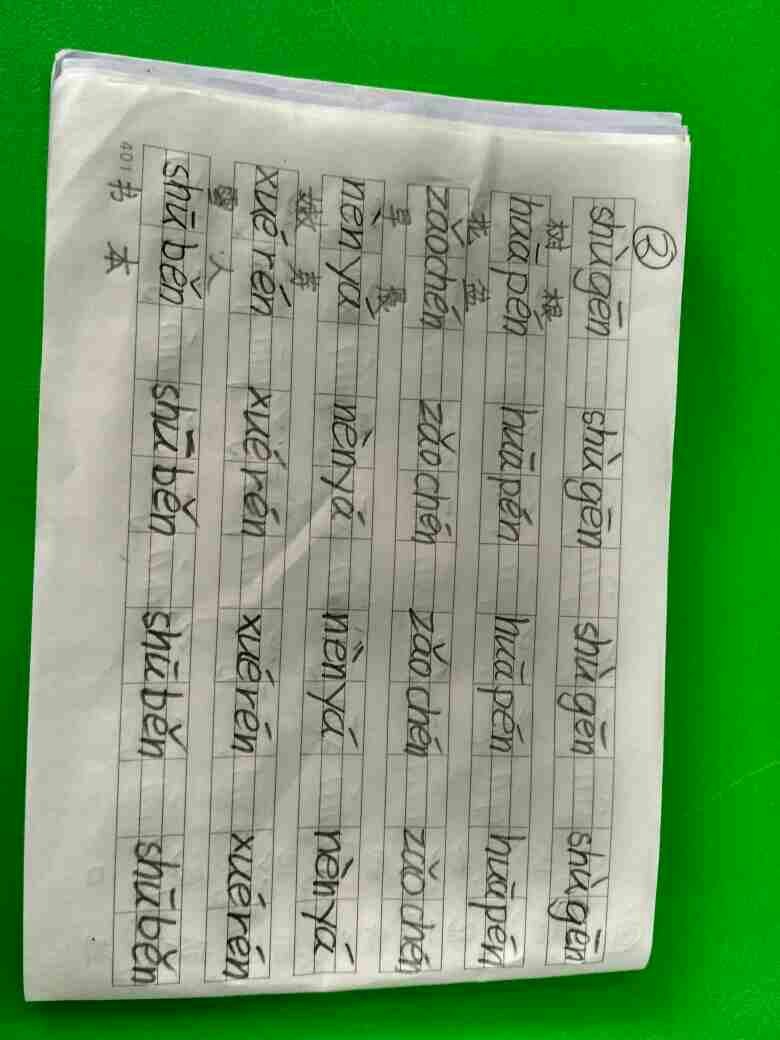 ②
shùgēn shùgēn shùgēn shùgēn
树 根
huāpén huāpén huāpén huāpén
花 盆
zǎochén zǎochén zǎochén zǎochén
早 晨
nènyá nènyá nènyá nènyá
嫩 芽
xuérén xuérén xuérén xuérén
雪 人
shūběn shūběn shūběn shūběn
401
书 本